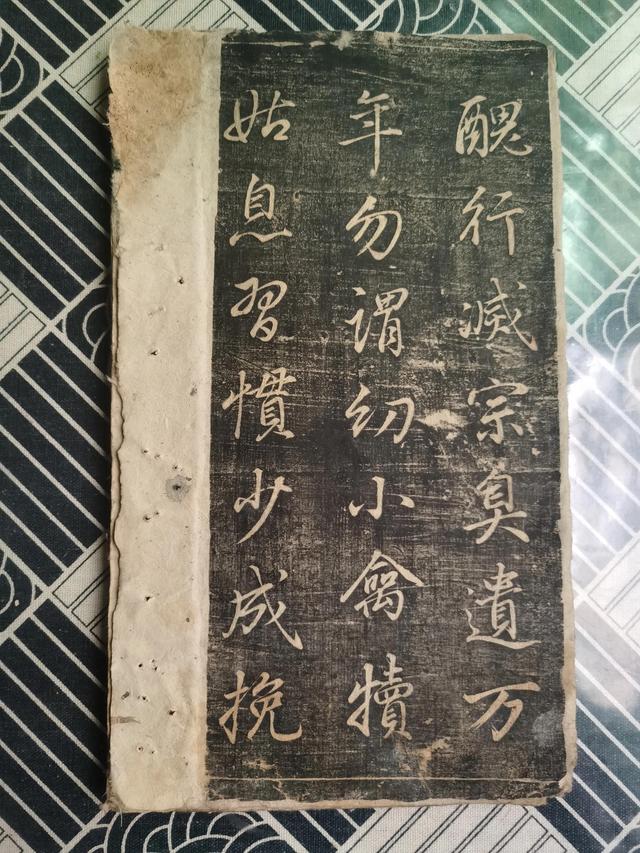 醜行滅宗臭遺万
年勿謂幼小禽犢
姑息習慣少成挽